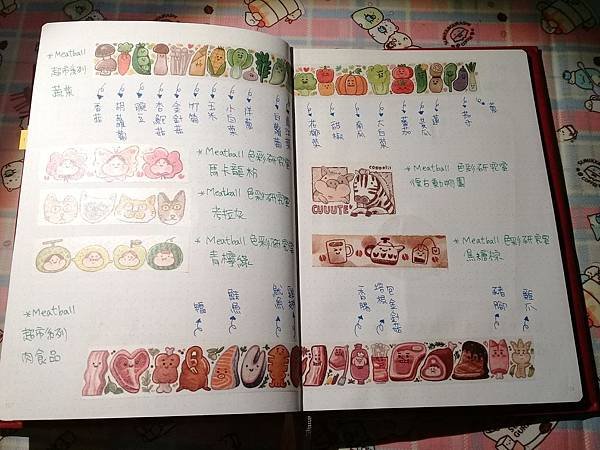 *Meatball
超市系列
蔬菜
香菇
胡蘿蔔
豌豆
杏鮑菇
金針菇
竹筍
玉米
小白菜
洋蔥
白蘿蔔
花椰菜
甜椒
南瓜
大白菜
番茄
黃瓜
蓮
茄子
蔥
*Meatball 色彩研究室
馬卡龍粉
*Meatball 色彩研究室
*Meatball 色彩研究室
青檸綠
*Meatball 色彩研究室
復古動物園
CUUUTE
*Meatball 色彩研究室
焦糖棕
*Meatball
超市系列
肉食品
鱈魚
鮭魚
魷魚
香腸
培根
豬腳
雞爪